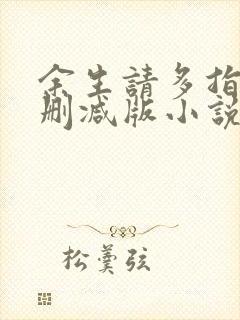 余生請多指
刪減版小說
松羹弦